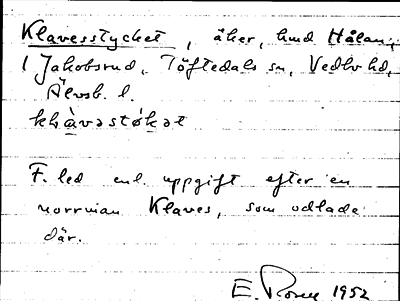 Klavesstycket, åker, hmd Hålan,
1 Jakobsrud, Töftedals sn, Vedbo hd,
Älvsb. l.
klàvəstøkət
F. led enl. uppgift efter en
norrman Klaves, som odlade
där.
E. Rosell 1952